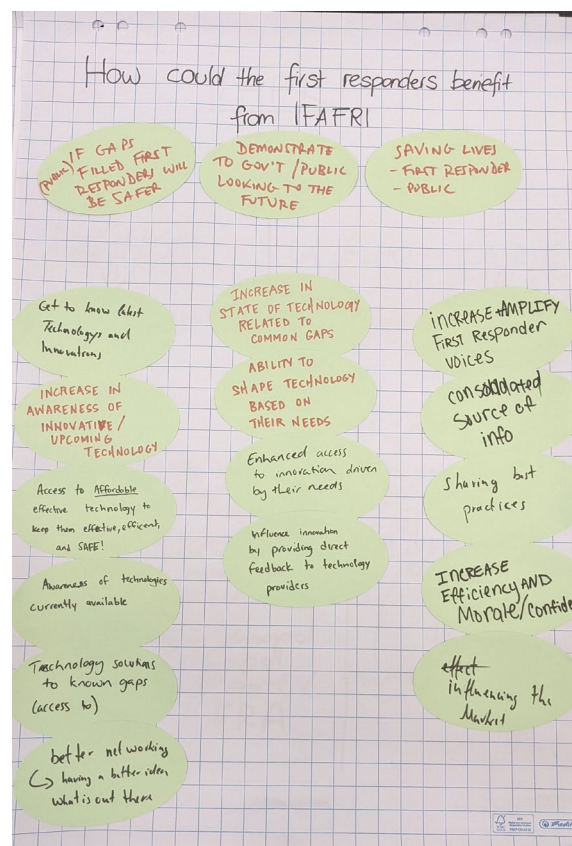 How could the first responders benefit
from IFAFRI
(PUBLIC) IF GAPS
FILLED FIRST
RESPONDERS WILL
BE SAFER
DEMONSTRATE
TO GOV'T/PUBLIC
LOOKING TO THE
FUTURE
SAVING LIVES
- FIRST RESPONDER
- PUBLIC
Get to know latest
Technologys and
Innovations
INCREASE IN
AWARENESS OF
INNOVATIVE/
UPCOMING
TECHNOLOGY
Access to Affordable
effective technology to
keep them effective, efficent,
and SAFE!
Awareness of technologies
currently available
Technology solutions
to known gaps
(access to)
better networking
↳ having a better idea
what is out there
INCREASE IN
STATE OF TECHNOLOGY
RELATED TO
COMMON GAPS
ABILITY TO
SHAPE TECHNOLOGY
BASED ON
THEIR NEEDS
Enhanced access
to innovation driven
by their needs
Influence innovation
by providing direct
feedback to technology
providers
INCREASE + AMPLIFY
First Responder
voices
consolidated
source of
info
Sharing best
practices
INCREASE
Efficiency AND
Morale/Confide
effect
influencing the
Market
FSC